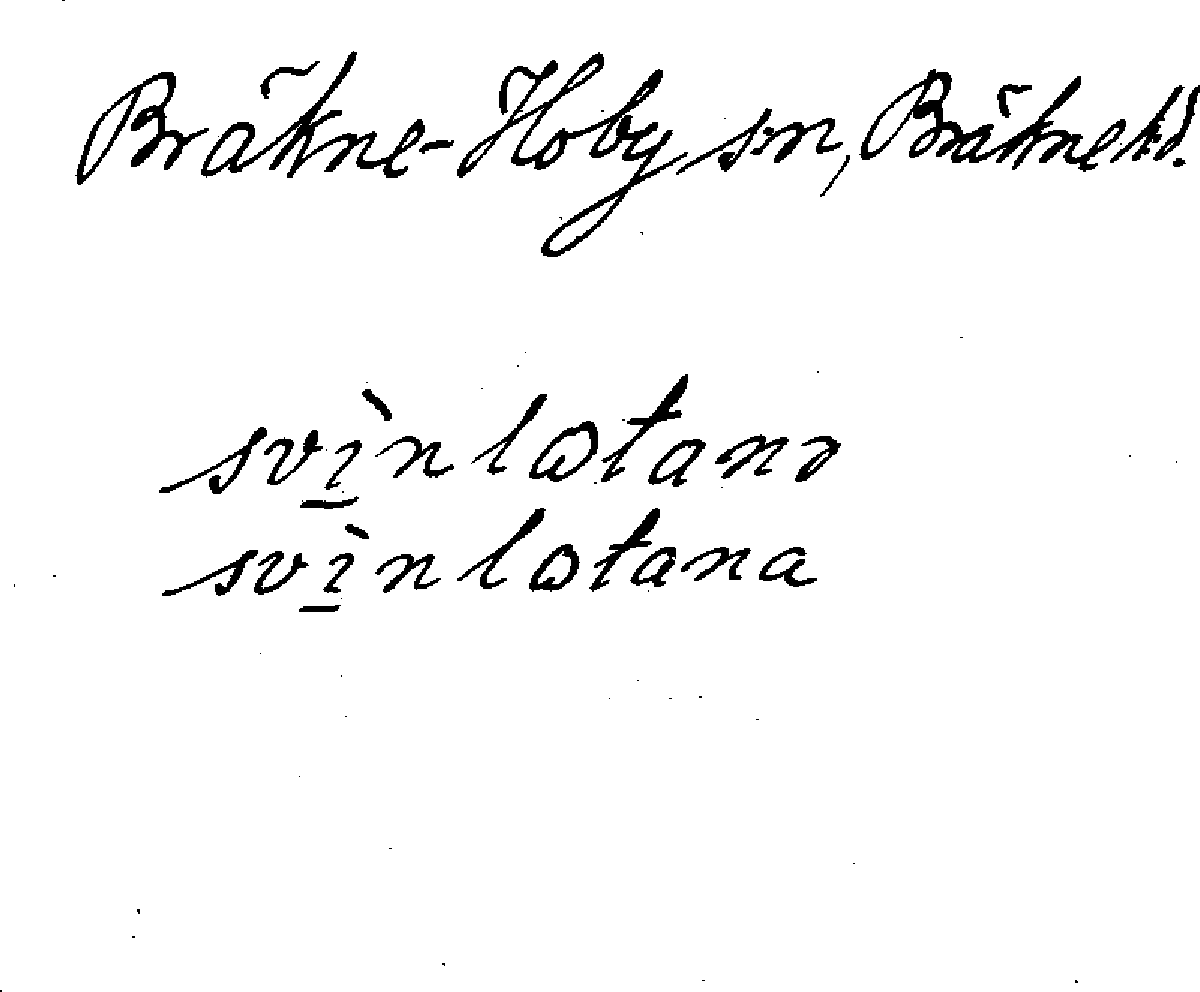 Bräkne-Hoby sn, Bräkne hd.
svì̠nlωtanə
svì̠nlωtana